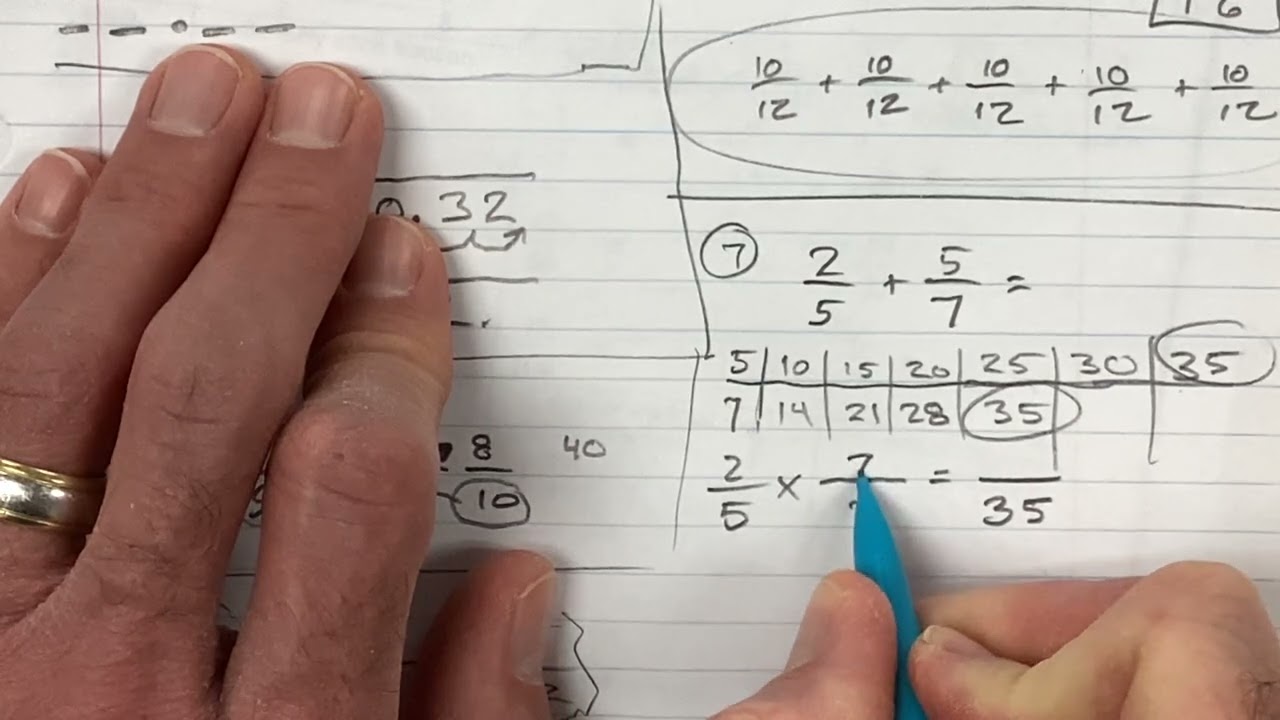 16
10/12 + 10/12 + 10/12 + 10/12 + 10/12
0.32
7 2/5 + 5/7 =
5 10 15 20 25 30 35
7 14 21 28 35
8 40
10
2/5 × 7/ = /35